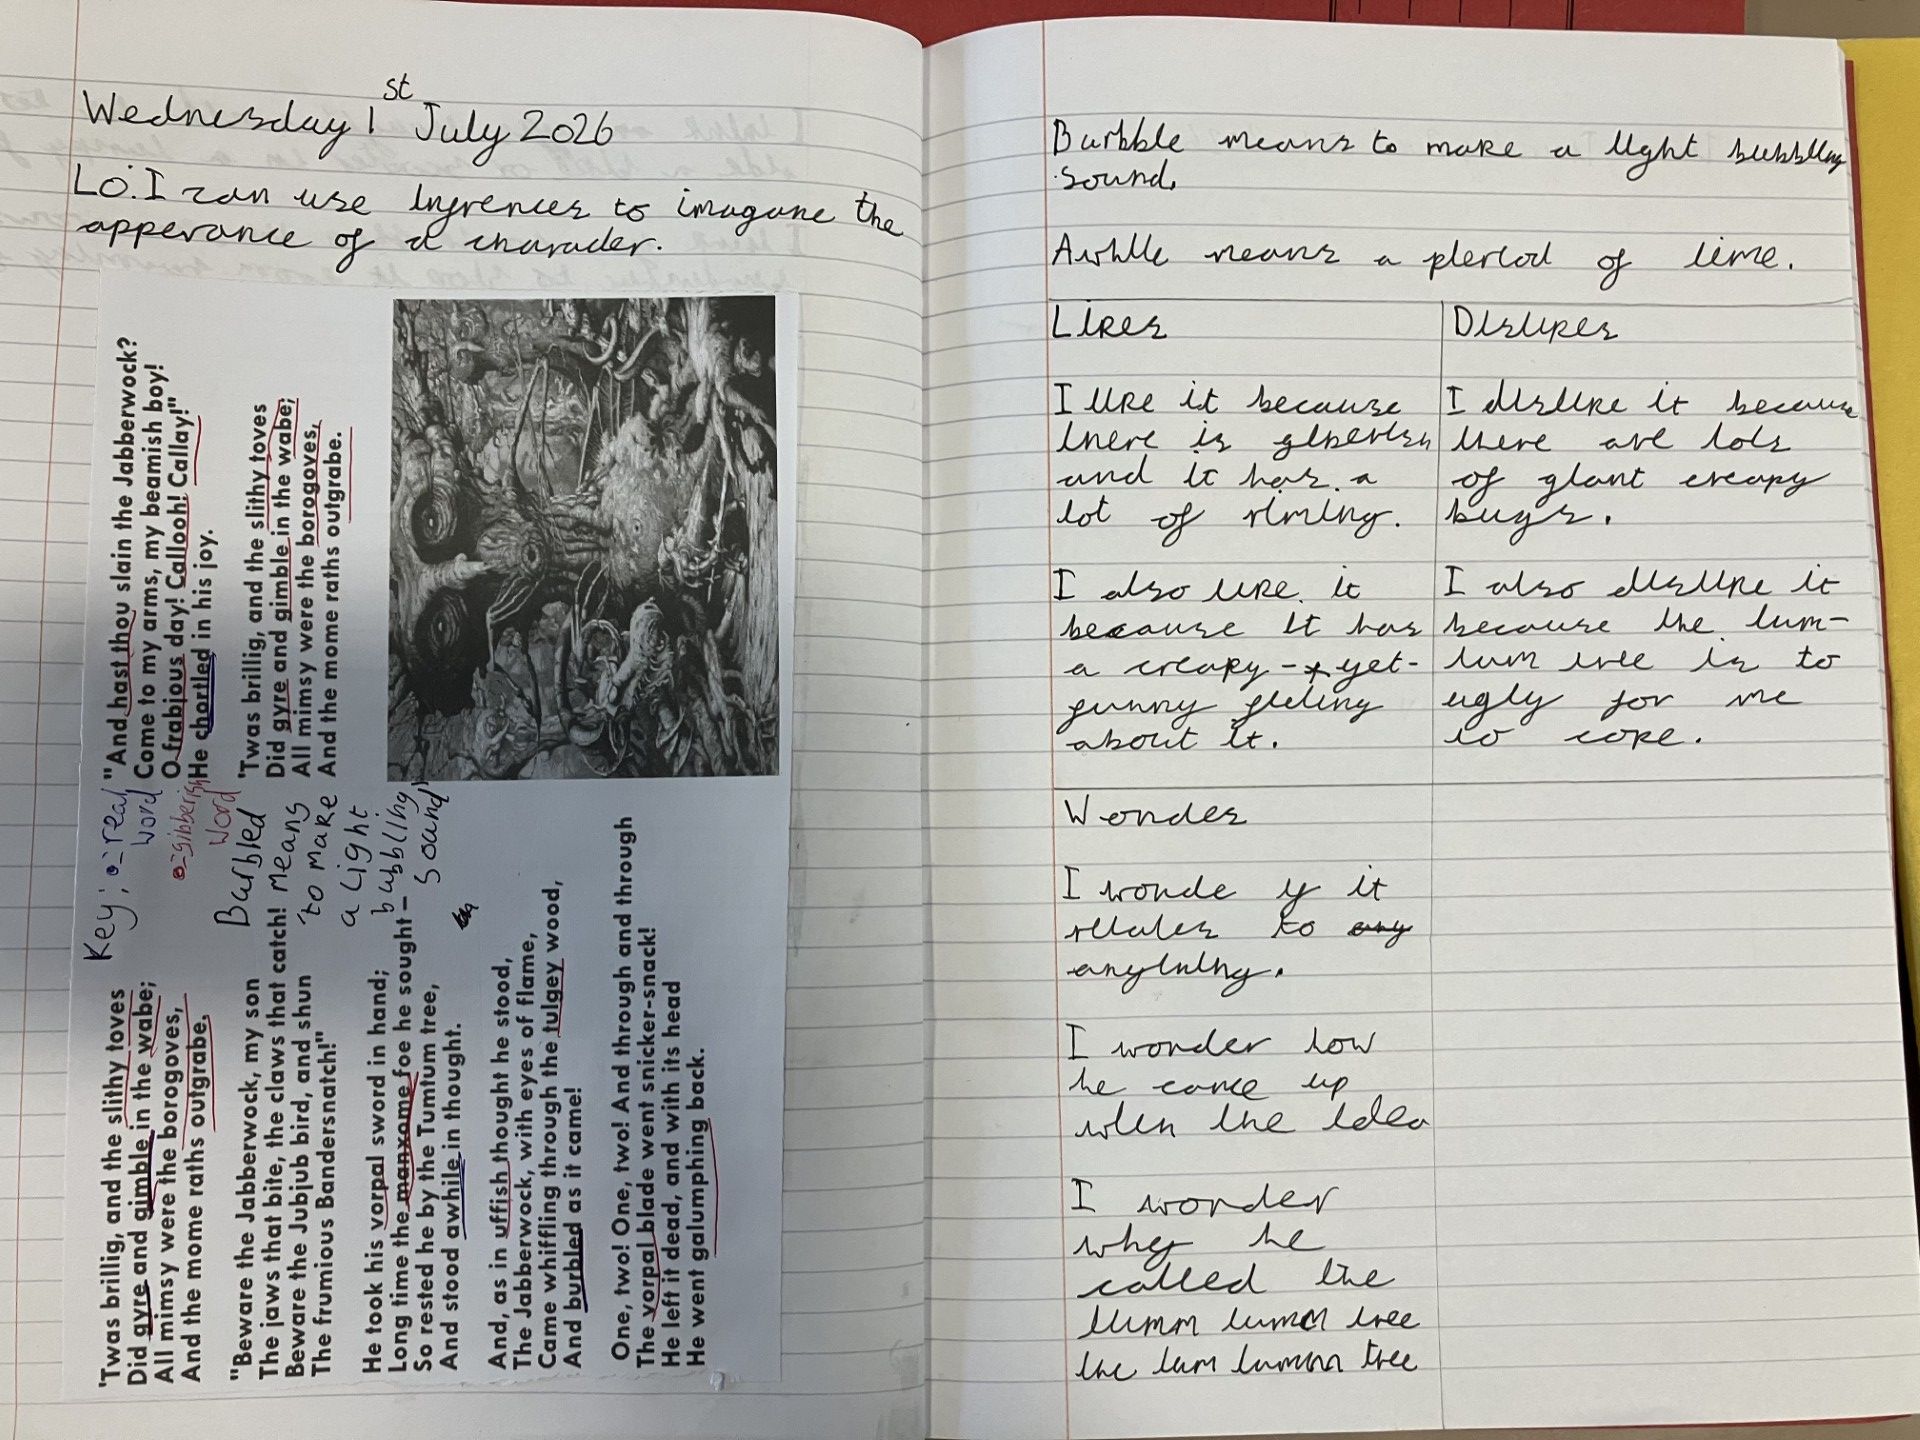 Wednesday 1st July 2026
Lo: I can use infrences to imagane the
apperance of a charader.
'Twas brillig, and the slithy toves
Did gyre and gimble in the wabe;
All mimsy were the borogoves,
And the mome raths outgrabe.
"Beware the Jabberwock, my son
The jaws that bite, the claws that catch!
Beware the Jubjub bird, and shun
The frumious Bandersnatch!"
He took his vorpal sword in hand;
Long time the manxome foe he sought –
So rested he by the Tumtum tree,
And stood awhile in thought.
And, as in uffish thought he stood,
The Jabberwock, with eyes of flame,
Came whiffling through the tulgey wood,
And burbled as it came!
One, two! One, two! And through and through
The vorpal blade went snicker-snack!
He left it dead, and with its head
He went galumphing back.
Key: - real
word
- gibberish
word
Burbled
means
to make
a light
bubbling
sound
"And hast thou slain the Jabberwock?
Come to my arms, my beamish boy!
O frabjous day! Callooh! Callay!"
He chortled in his joy.
'Twas brillig, and the slithy toves
Did gyre and gimble in the wabe;
All mimsy were the borogoves,
And the mome raths outgrabe.
Burbble means to make a light bubbling
sound.
Awhile means a pieriod of time.
Likes
I like it because
there is giberish
and it has a
lot of riming.
I also like it
because it has
a creapy - yet -
funny fieling
about it.
Dislikes
I dislike it because
there are lots
of giant creapy
bugs.
I also dislike it
because the tum-
tum tree is to
ugly for me
to cope.
Wonder
I wonde if it
rilates to any
anything.
I wonder how
he came up
with the idea
I wonder
why he
called the
tumm tumm tree
the tum tumm tree